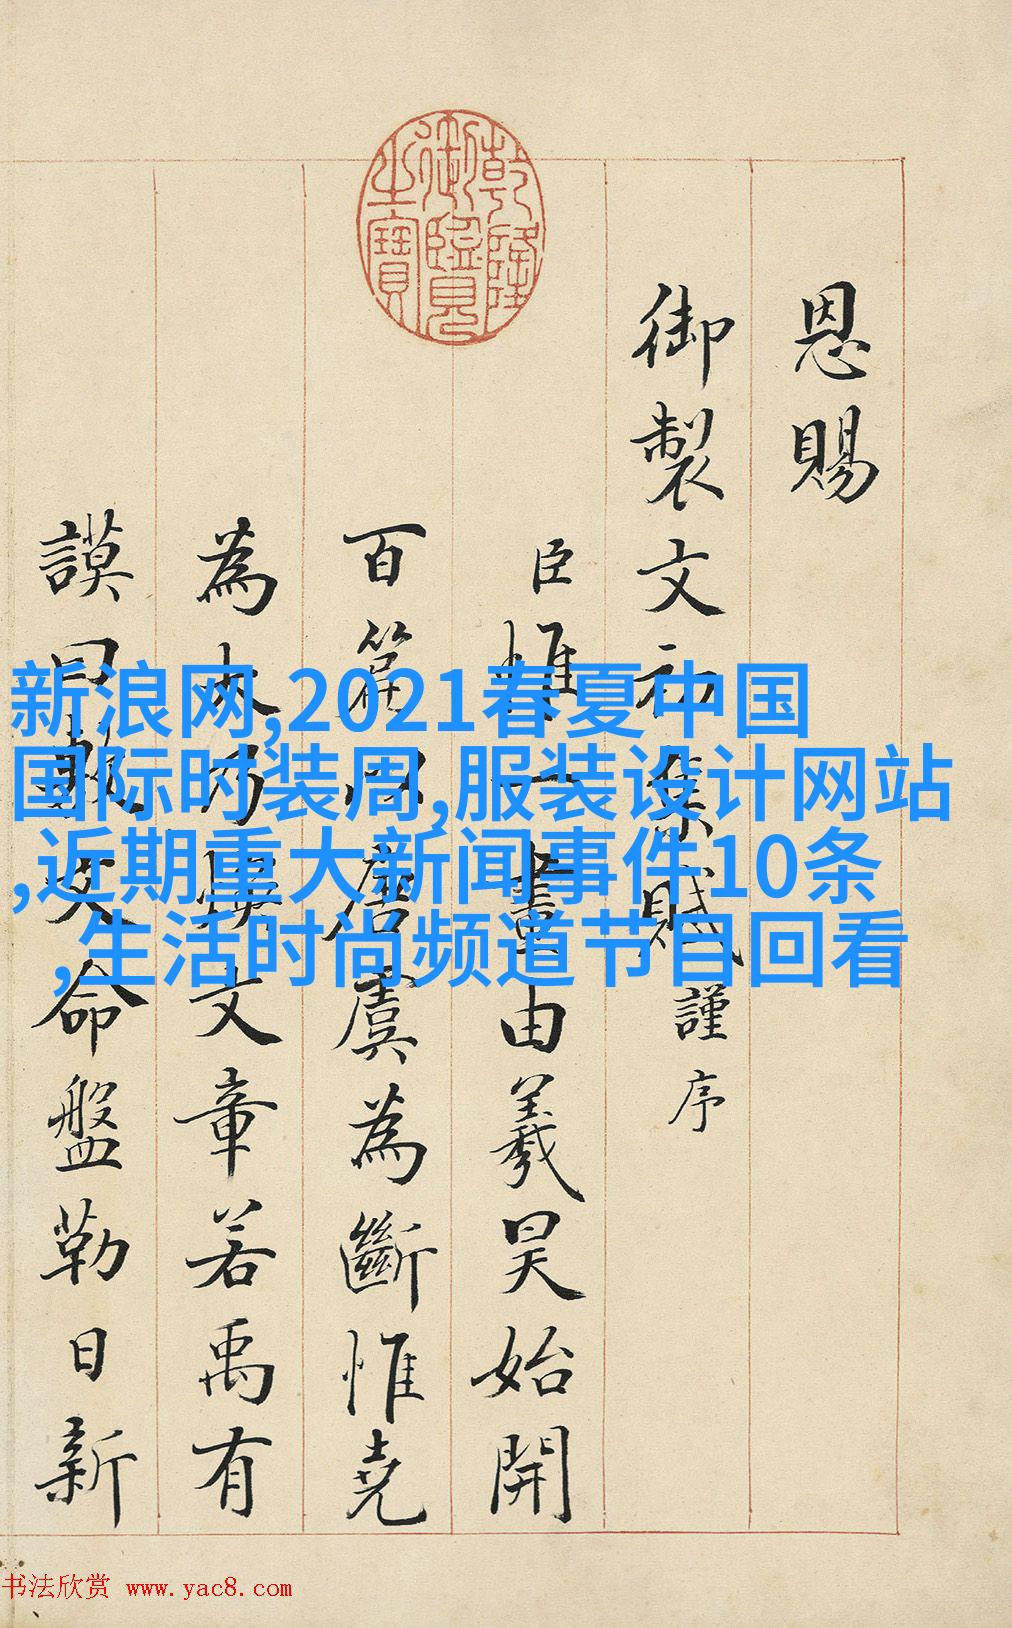 乾隆
御覽
之寶
恩賜
御製文初集賦謹序
臣惟一畫由羲昊始開
百篇以唐虞為斷惟堯
為大乃煥文章若禹有
謨曰敷文命盤勒日新
新浪网,2021春夏中国
国际时装周,服装设计网站
,近期重大新闻事件10条
,生活时尚频道节目回看
书法欣赏 www.yac8.com